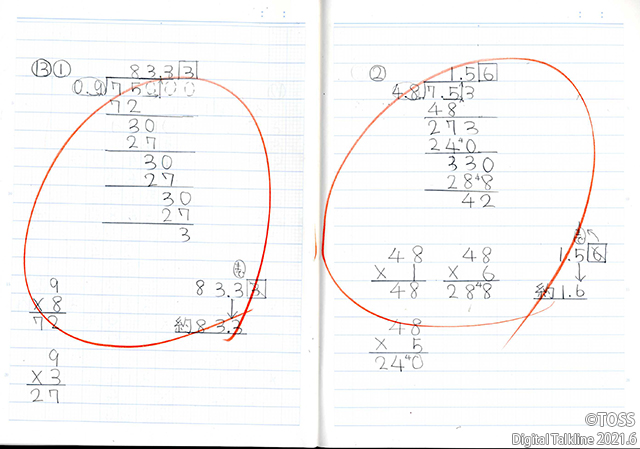 ⑬①
83.33
0.9 75000
72
30
27
30
27
30
27
3
9
×8
72
9
×3
27
83.33
約83.3
②
1.56
4.8 7.53
48
273
240
330
288
42
48
× 1
48
48
× 6
288
48
× 5
240
1.56
約1.6
©TOSS
Digital Talkline 2021.6